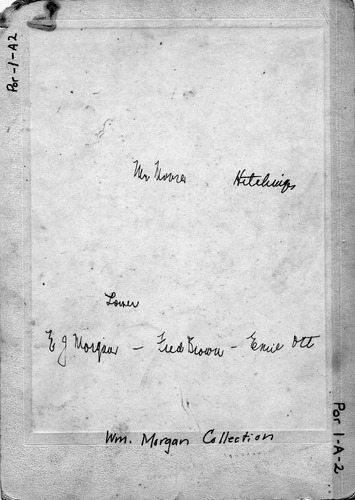 Por-1-A2
Mr. Moore Hitchings
Lower
E J Morgan - Fred Brown - Ernie Ott
Wm. Morgan Collection
Por 1-A-2